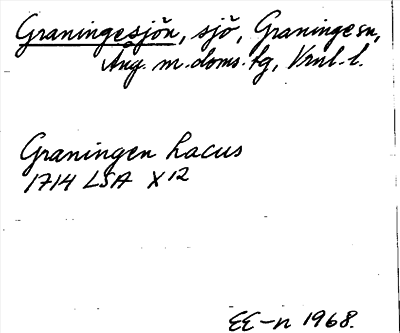 Graningesjön, sjö, Graninge sn,
Ång. m. doms. tg, Vrnl. l.
Graningen Lacus
1714 LSA X 12
EE-n 1968.